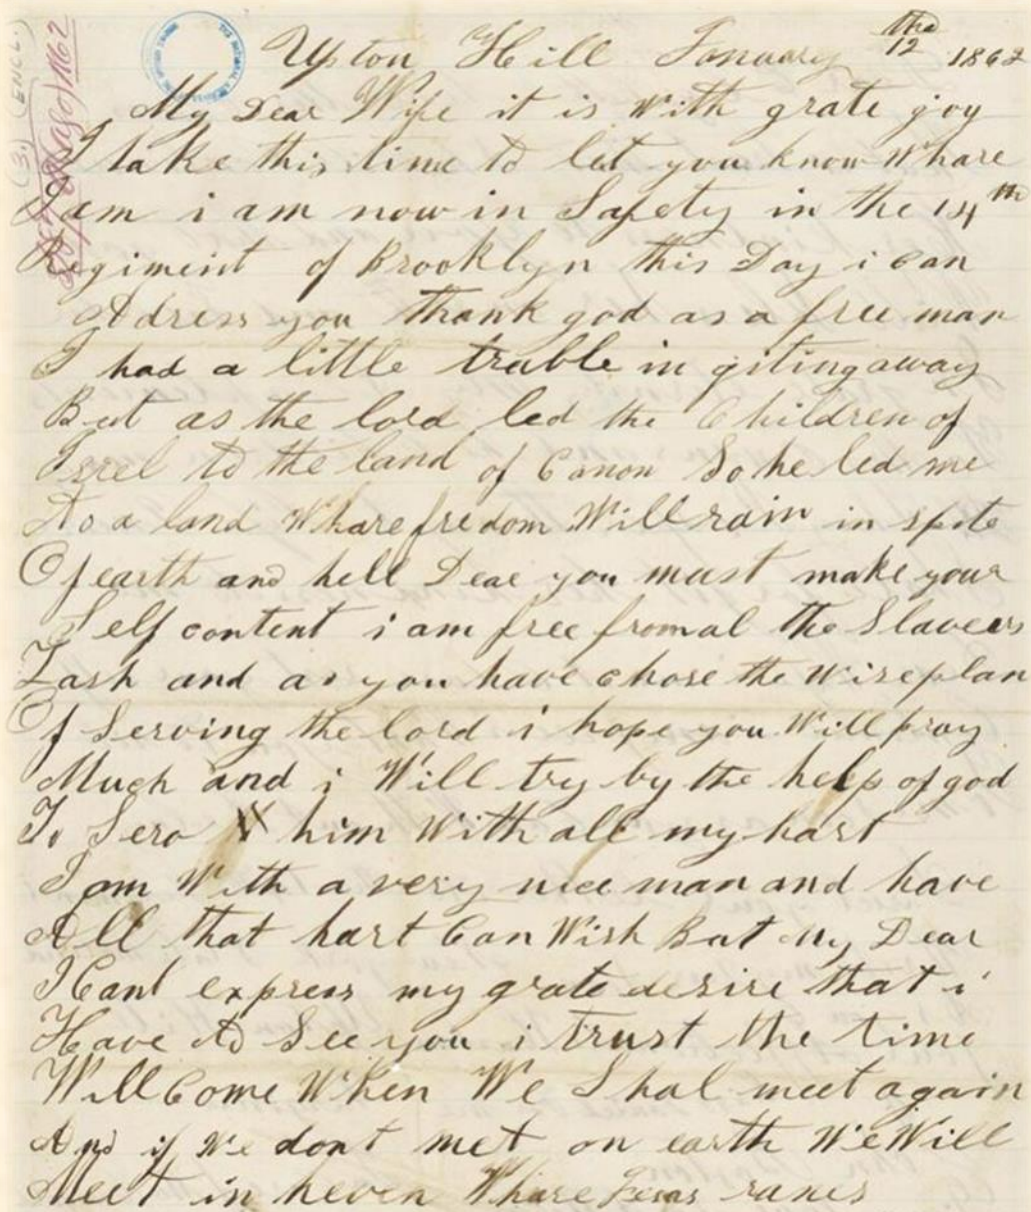 Upton Hill January the 12 1862
My Dear Wife it is With grate joy
I take this time to let you know Whare
I am i am now in Safety in the 14th
Regiment of Brooklyn this Day i can
Adress you thank god as a free man
I had a little truble in giting away
But as the lord led the Children of
Isrel to the land of Canon So he led me
To a land Whare fredom Will rain in spite
Of earth and hell Dear you must make your
Self content i am free from al the Slavers
Lash and as you have chose the Wise plan
Of Serving the lord i hope you Will pray
Much and i Will try by the help of god
To Serv him With all my hart
I am With a very nice man and have
All that hart Can Wish But My Dear
I Cant express my grate desire that i
Have to See you i trust the time
Will Come When We Shal meet again
And if We dont met on earth We Will
Meet in heven Whare Jesas ranes
(3.) (ENCL.)